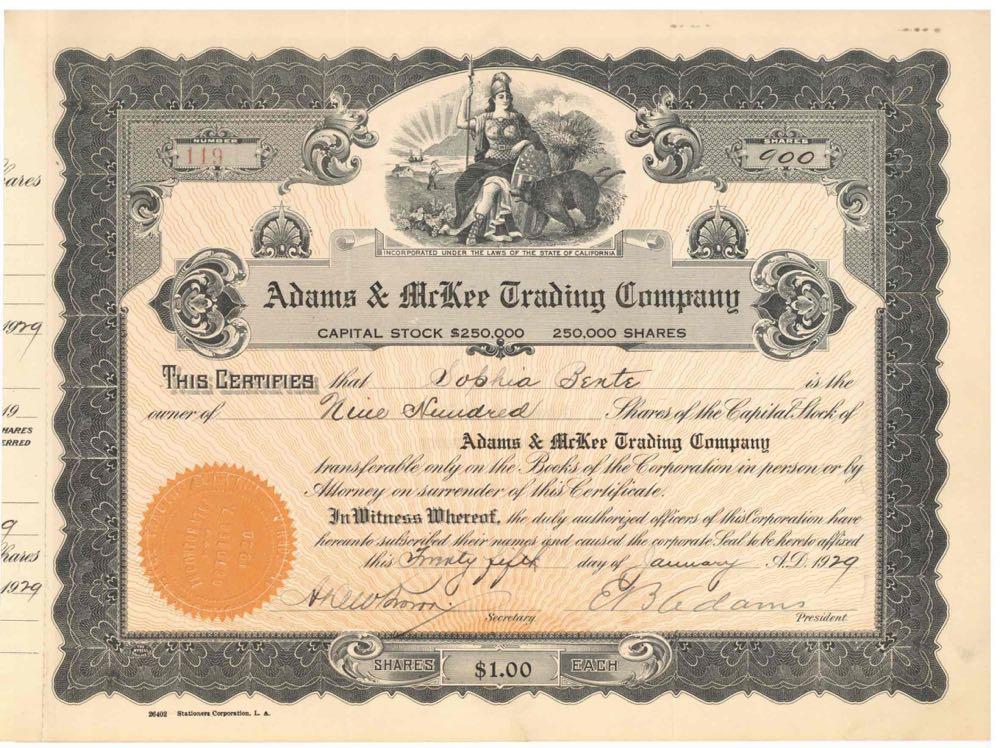 NUMBER
119
SHARES
900
INCORPORATED UNDER THE LAWS OF THE STATE OF CALIFORNIA
Adams & McKee Trading Company
CAPITAL STOCK $250,000 250,000 SHARES
THIS CERTIFIES that Sophia Bente is the
owner of Nine Hundred Shares of the Capital Stock of
Adams & McKee Trading Company
transferable only on the Books of the Corporation in person or by
Attorney on surrender of this Certificate.
In Witness Whereof, the duly authorized officers of this Corporation have
hereunto subscribed their names and caused the corporate Seal to be hereto affixed
this Twenty fifth day of January A.D. 1929
E B Adams
Secretary
President
SHARES $1.00 EACH
26402 Stationers Corporation, L. A.
ares
1929
19
HARES
ERRED
9
hares
1929